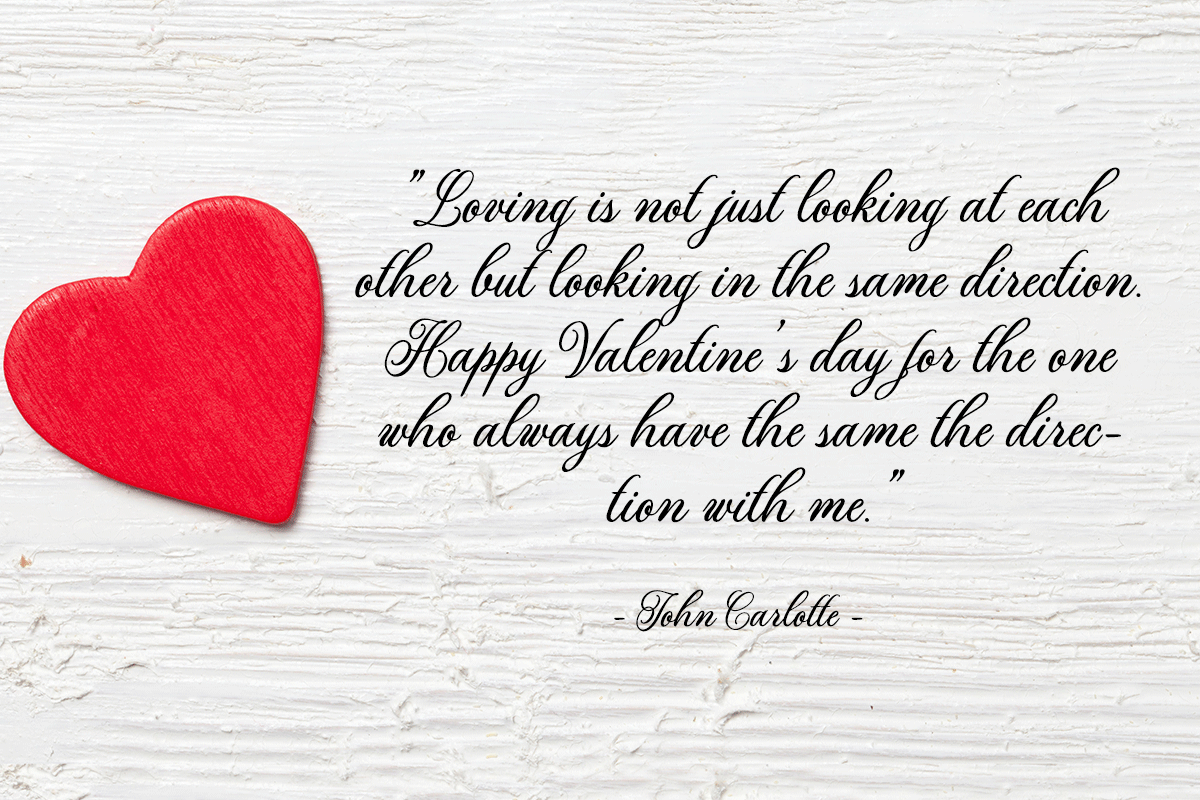 "Loving is not just looking at each
other but looking in the same direction.
Happy Valentine's day for the one
who always have the same the direc-
tion with me."
- John Carlotte -